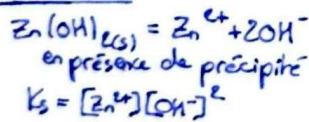 Zn(OH)₂(s) = Zn²⁺ + 2OH⁻
en présence de précipité
Ks = [Zn²⁺][OH⁻]²